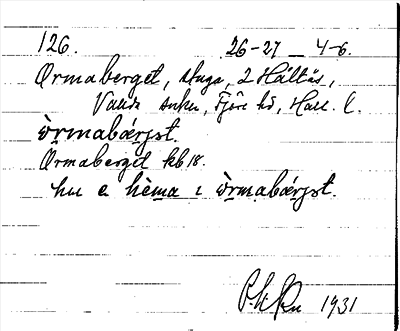 126. 26-27 _ 4-6.
Ormaberget, stuga, 2 Hältås,
Valda sokn, Fjäre hd, Hall. l.
òrmabǽrjst.
Ormaberget kb 18.
hu e hèma ı òrmabǽrjst.
1931